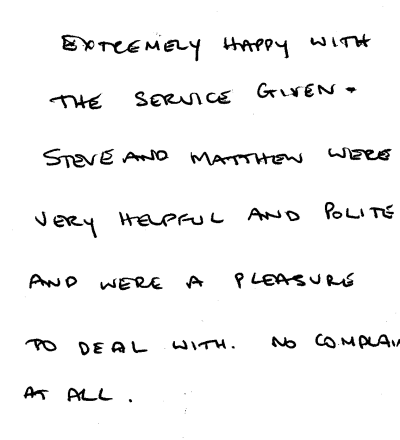 EXTREMELY HAPPY WITH
THE SERVICE GIVEN.
STEVE AND MATTHEW WERE
VERY HELPFUL AND POLITE
AND WERE A PLEASURE
TO DEAL WITH. NO COMPLAIN
AT ALL.